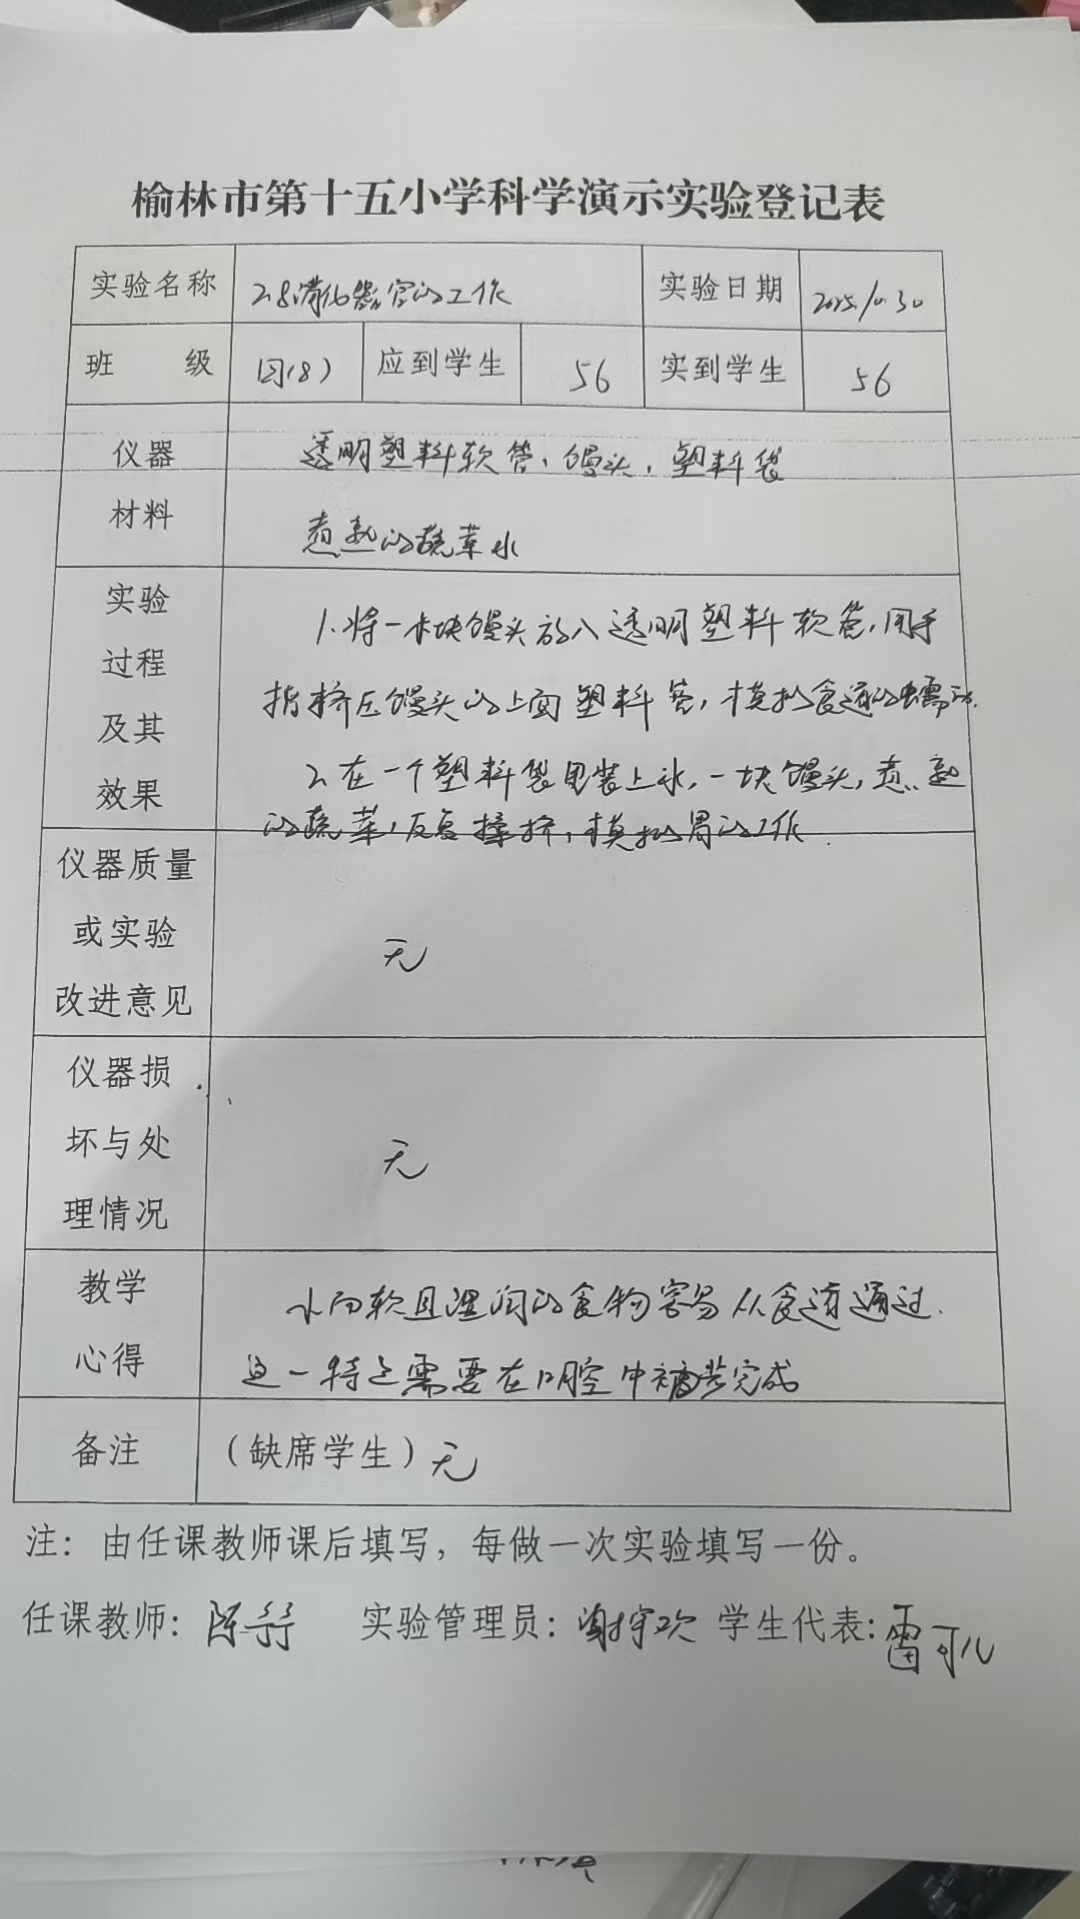 榆林市第十五小学科学演示实验登记表
实验名称 2.8消化器官的工作 实验日期 2025.10.30
班 级 四(8) 应到学生 56 实到学生 56
仪器 透明塑料软管、馒头、塑料袋
材料 煮熟的蔬菜水
实验
过程
及其
效果
1.将一小块馒头放入透明塑料软管,用手
指挤压馒头的上面塑料管,模拟食道的蠕动.
2.在一个塑料袋里装上水,一块馒头,煮熟
的蔬菜,反复揉挤,模拟胃的工作.
仪器质量
或实验
改进意见
无
仪器损
坏与处
理情况
无
教学
心得
小而软且湿润的食物容易从食道通过.
这一特点需要在口腔中被完成
备注 (缺席学生)无
注:由任课教师课后填写,每做一次实验填写一份。
任课教师: 陈 实验管理员: 谢宇欢 学生代表: 雷可儿